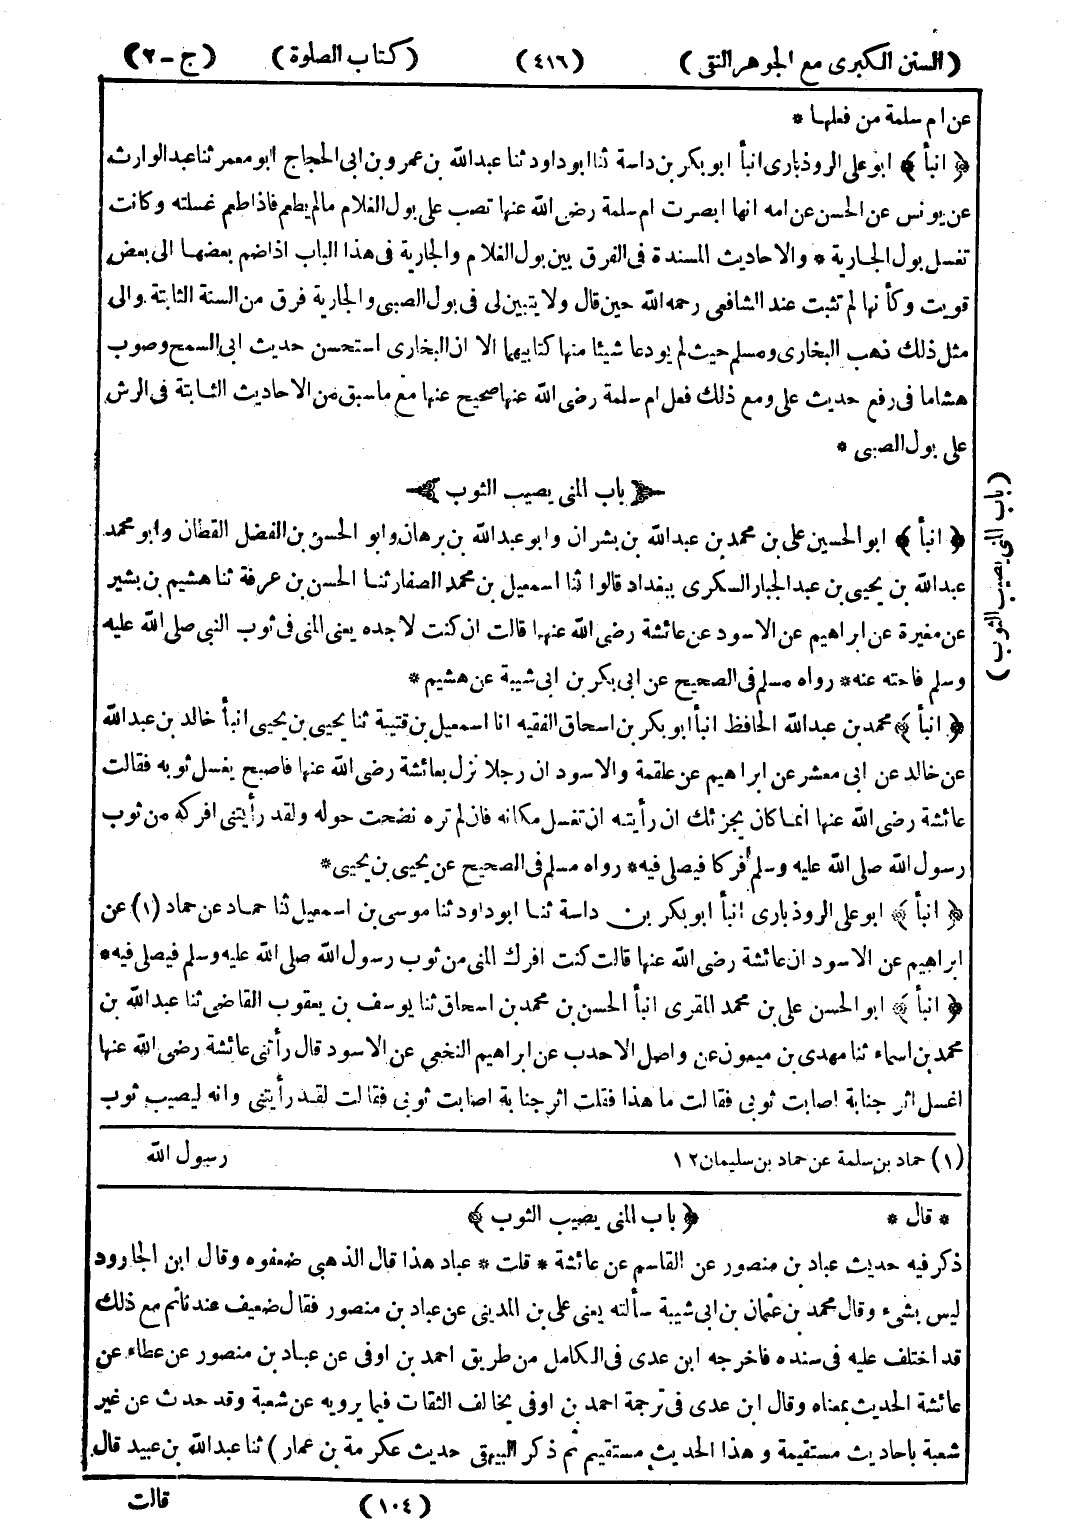 (السنن الكبرى مع الجوهر النقى) (٤١٦) (كتاب الصلوة) (ج-٢)
عن ام سلمة من فعلها *
﴿ انبأ ﴾ ابو على الروذبارى انبأ ابو بكر بن داسة ثنا ابو داود ثنا عبدالله بن عمرو بن ابى الحجاج ابو معمر ثنا عبد الوارث
عن يونس عن الحسن عن امه انها ابصرت ام سلمة رضى الله عنها تصب على بول الغلام مالم يطعم فاذا طعم غسلته وكانت
تغسل بول الجارية * والاحاديث المسندة فى الفرق بين بول الغلام والجارية فى هذا الباب اذا ضم بعضها الى بعض
قويت وكأنها لم تثبت عند الشافعى رحمه الله حين قال ولا يتبين لى فى بول الصبى والجارية فرق من السنة الثابتة والى
مثل ذلك ذهب البخارى ومسلم حيث لم يودعا شيئا منها كتابيهما الا ان البخارى استحسن حديث ابى السمح وصوب
هشاما فى رفع حديث على ومع ذلك فعل ام سلمة رضى الله عنها صحيح عنها مع ما سبق من الاحاديث الثابتة فى الرش
على بول الصبى *
باب المنى يصيب الثوب
(باب المنى يصيب الثوب)
﴿ انبأ ﴾ ابو الحسين على بن محمد بن عبدالله بن بشران وابو عبدالله بن برهان وابو الحسن بن الفضل القطان وابو محمد
عبدالله بن يحيى بن عبد الجبار السكرى ببغداد قالوا ثنا اسمعيل بن محمد الصفار ثنا الحسن بن عرفة ثنا هشيم بن بشير
عن مغيرة عن ابراهيم عن الاسود عن عائشة رضى الله عنها قالت ان كنت لاجده يعنى المنى فى ثوب النبى صلى الله عليه
وسلم فاحته عنه * رواه مسلم فى الصحيح عن ابى بكر بن ابى شيبة عن هشيم *
﴿ انبأ ﴾ محمد بن عبدالله الحافظ انبأ ابو بكر بن اسحاق الفقيه انا اسمعيل بن قتيبة ثنا يحيى بن يحيى انبأ خالد بن عبدالله
عن خالد عن ابى معشر عن ابراهيم عن علقمة والاسود ان رجلا نزل بعائشة رضى الله عنها فاصبح يغسل ثوبه فقالت
عائشة رضى الله عنها انما كان يجزئك ان رأيته ان تغسل مكانه فان لم تره نضحت حوله ولقد رأيتنى افركه من ثوب
رسول الله صلى الله عليه وسلم فركا فيصلى فيه * رواه مسلم فى الصحيح عن يحيى بن يحيى *
﴿ انبأ ﴾ ابو على الروذبارى انبأ ابو بكر بن داسة ثنا ابو داود ثنا موسى بن اسمعيل ثنا حماد عن حماد (١) عن
ابراهيم عن الاسود ان عائشة رضى الله عنها قالت كنت افرك المنى من ثوب رسول الله صلى الله عليه وسلم فيصلى فيه *
﴿ انبأ ﴾ ابو الحسن على بن محمد المقرى انبأ الحسن بن محمد بن اسحاق ثنا يوسف بن يعقوب القاضى ثنا عبدالله بن
محمد بن اسماء ثنا مهدى بن ميمون عن واصل الاحدب عن ابراهيم النخعى عن الاسود قال رأتنى عائشة رضى الله عنها
اغسل اثر جنابة اصابت ثوبى فقالت ما هذا فقلت اثر جنابة اصابت ثوبى فقالت لقد رأيتنى وانه ليصيب ثوب
رسول الله
(١) حماد بن سلمة عن حماد بن سليمان ١٢
* قال * ﴿ باب المنى يصيب الثوب ﴾
ذكر فيه حديث عباد بن منصور عن القاسم عن عائشة * قلت * عباد هذا قال الذهبى ضعفوه وقال ابن الجارود
ليس بشىء وقال محمد بن عثمان بن ابى شيبة سألته يعنى على بن المدينى عن عباد بن منصور فقال ضعيف عندنا ثم مع ذلك
قد اختلف عليه فى سنده فاخرجه ابن عدى فى الكامل من طريق احمد بن اوفى عن عباد بن منصور عن عطاء عن
عائشة الحديث بمعناه وقال ابن عدى فى ترجمة احمد بن اوفى يخالف الثقات فيما يرويه عن شعبة وقد حدث عن غير
شعبة باحاديث مستقيمة و هذا الحديث مستقيم ثم ذكر البيهقى حديث عكرمة بن عمار) ثنا عبدالله بن عبيد قال
قالت
(١٠٤)